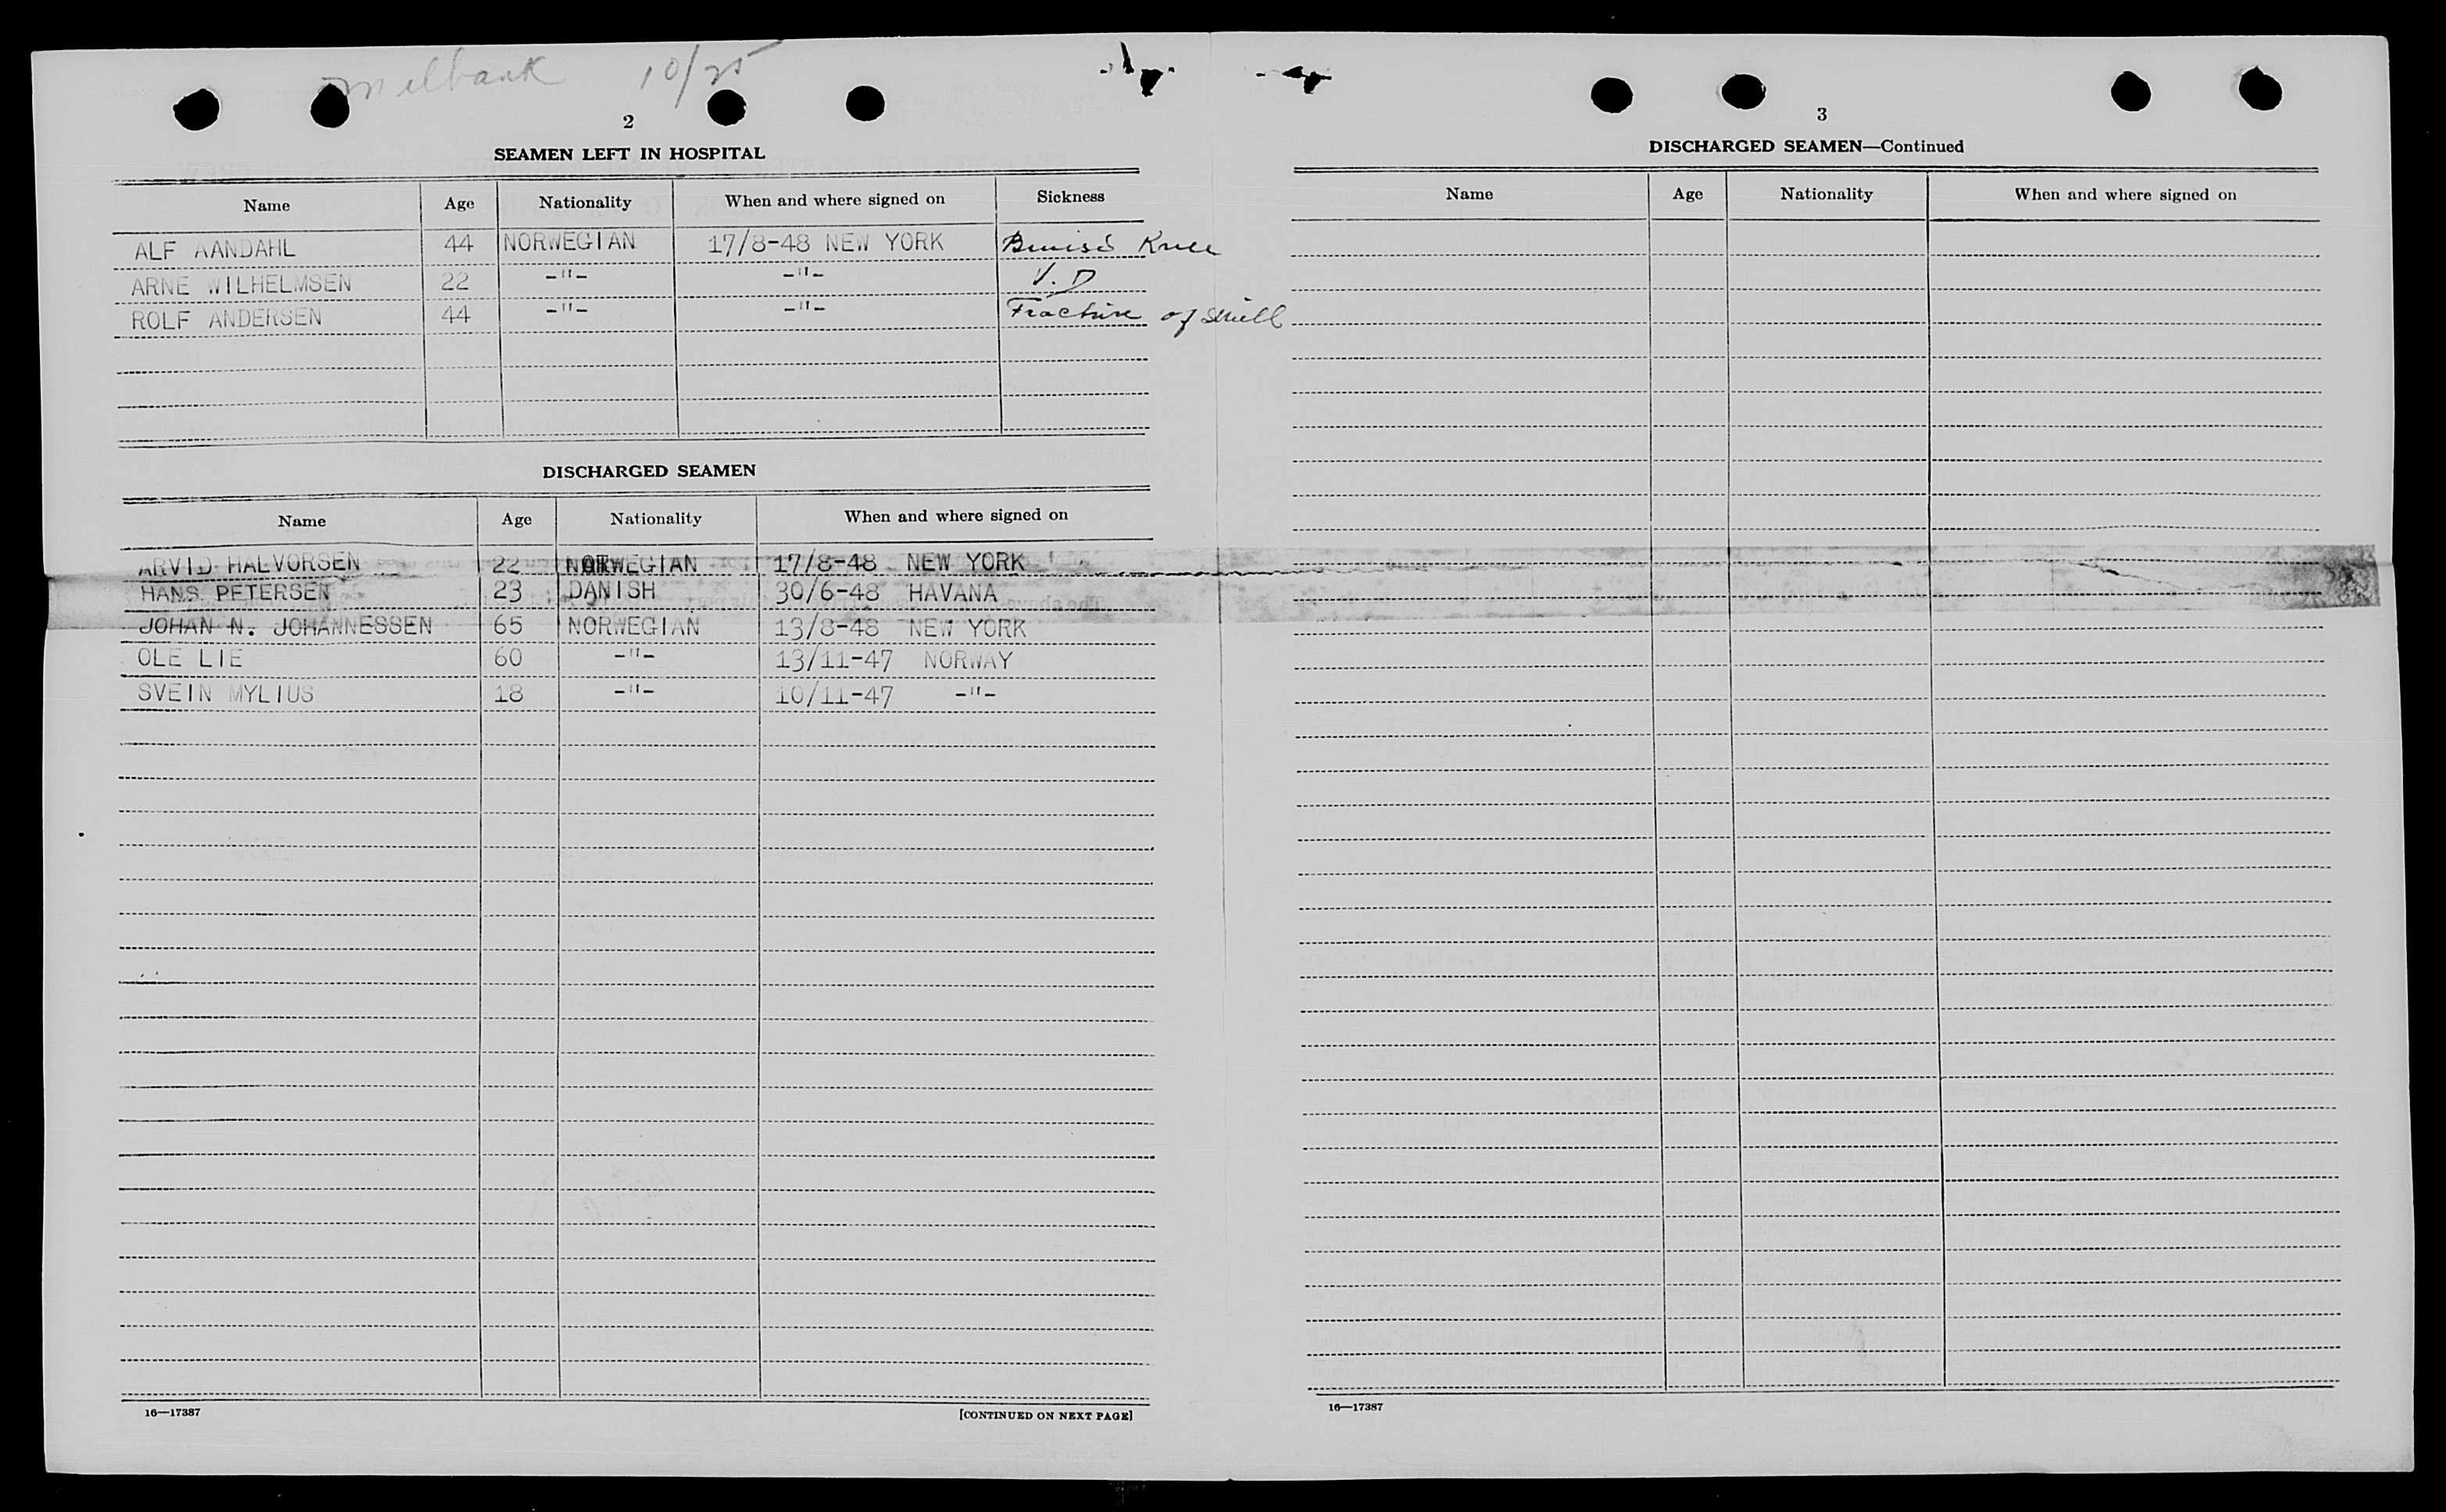 Melbank 10/25
2
SEAMEN LEFT IN HOSPITAL
Name Age Nationality When and where signed on Sickness
ALF AANDAHL 44 NORWEGIAN 17/8-48 NEW YORK Bruised Knee
ARNE WILHELMSEN 22 -"- -"- V.D
ROLF ANDERSEN 44 -"- -"- Fracture of Skull
DISCHARGED SEAMEN
Name Age Nationality When and where signed on
ARVID HALVORSEN 22 NORWEGIAN 17/8-48 NEW YORK
HANS PETERSEN 23 DANISH 30/6-48 HAVANA
JOHAN N. JOHANNESSEN 65 NORWEGIAN 13/8-48 NEW YORK
OLE LIE 60 -"- 13/11-47 NORWAY
SVEIN MYLIUS 18 -"- 10/11-47 -"-
16—17387 [CONTINUED ON NEXT PAGE]
3
DISCHARGED SEAMEN—Continued
Name Age Nationality When and where signed on
16—17387